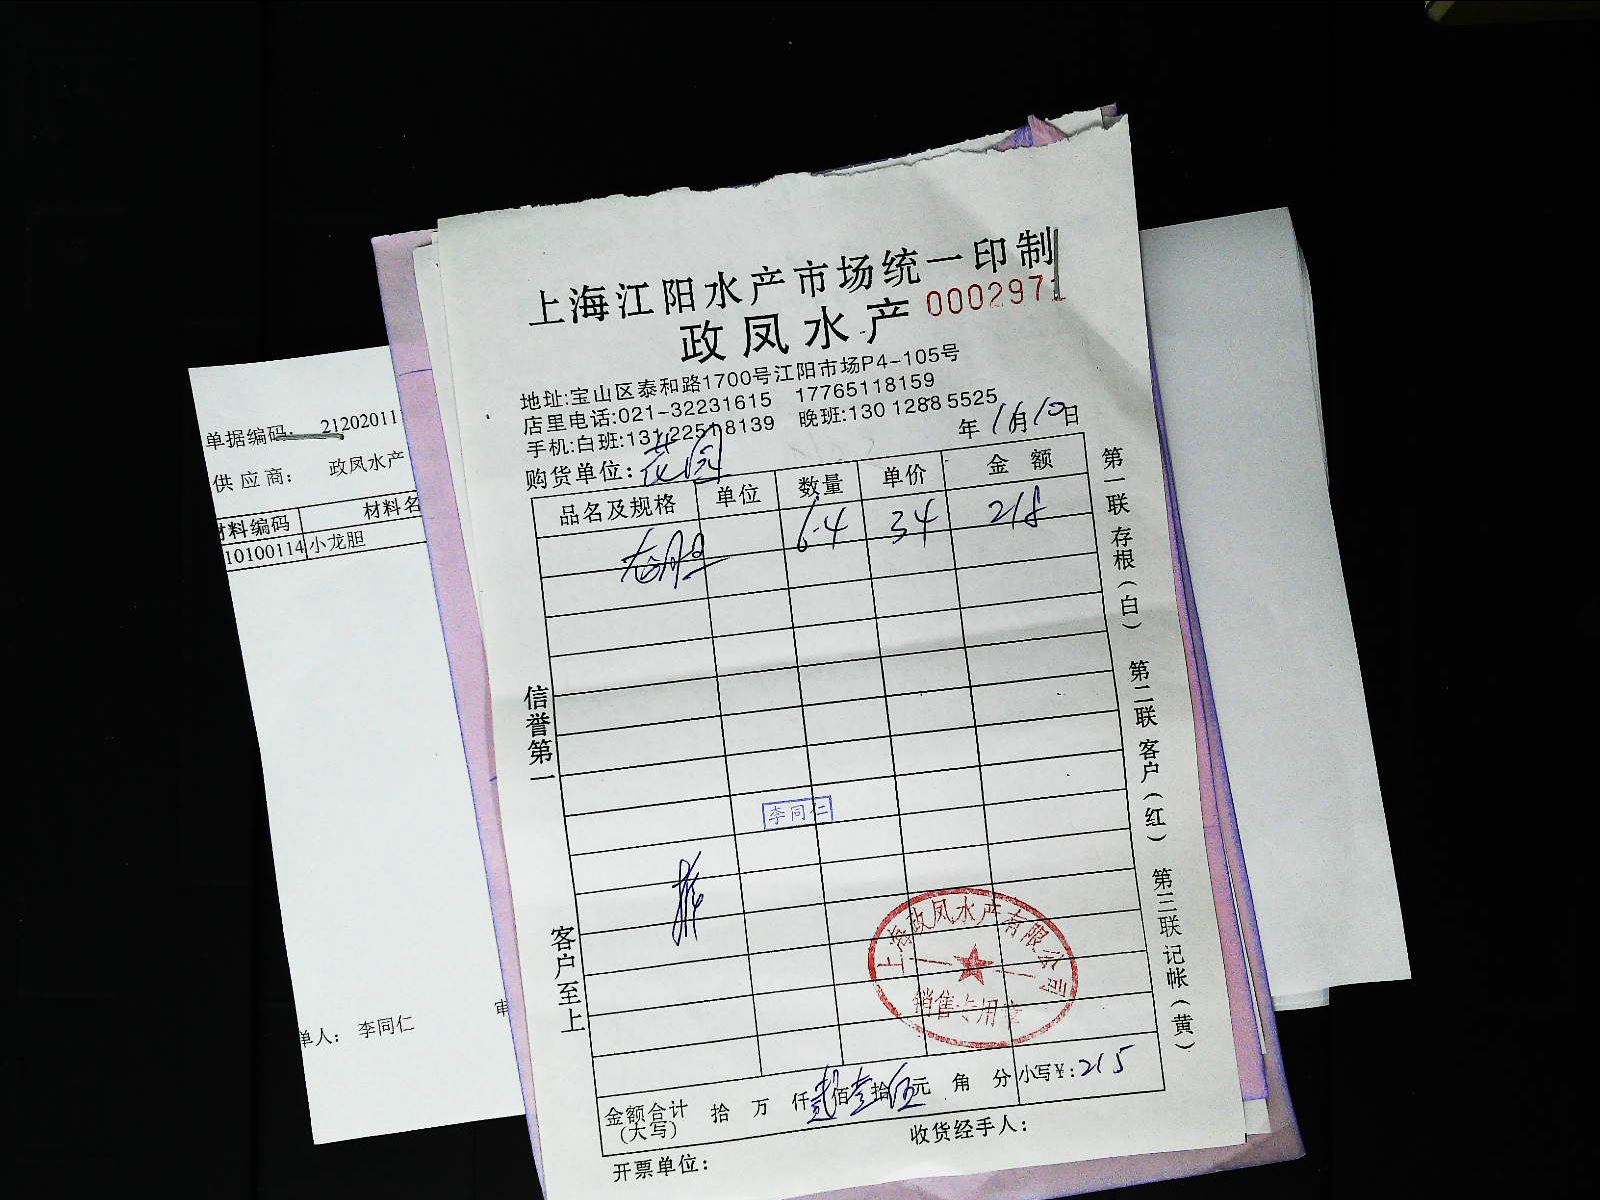 上海江阳水产市场统一印制
政凤水产 0002971
地址:宝山区泰和路1700号江阳市场P4-105号
店里电话:021-32231615 17765118159
手机:白班:13122518139 晚班:130 1288 5525
购货单位: 花园 年 11月10日
品名及规格 单位 数量 单价 金额
龙胆 6.4 34 218
信誉第一
客户至上
李同仁
上海政凤水产有限公司
销售专用章
金额合计(大写) 拾 万 仟 贰佰壹拾伍元 角 分 小写¥:215
开票单位: 收货经手人:
第一联 存根(白) 第二联 客户(红) 第三联 记帐(黄)
单据编码: 21202011
供应商: 政凤水产
材料编码 材料名
10100114 小龙胆
单人: 李同仁 审